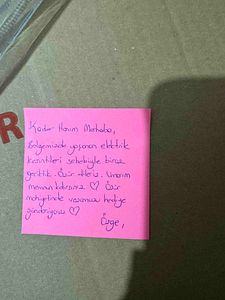 Kader Hanım Merhaba,
Bölgemizde yaşanan elektrik
kesintileri sebebiyle biraz
geciktik. Özür dileriz. Umarım
memnun kalırsınız ♡ Özür
mahiyetinde vazomuzu hediye
gönderiyoruz ♡
Özge,
R